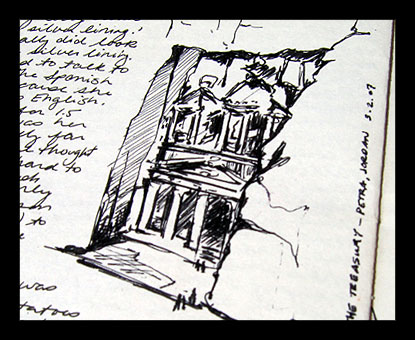 silver lining.'
ally did look
silver linin
d to talk to
the Spanish
cause she
English.
for 1.5
her
ly far
thought
hard to
to
was
tatoes
HE TREASURY – PETRA, JORDAN 3.2.07